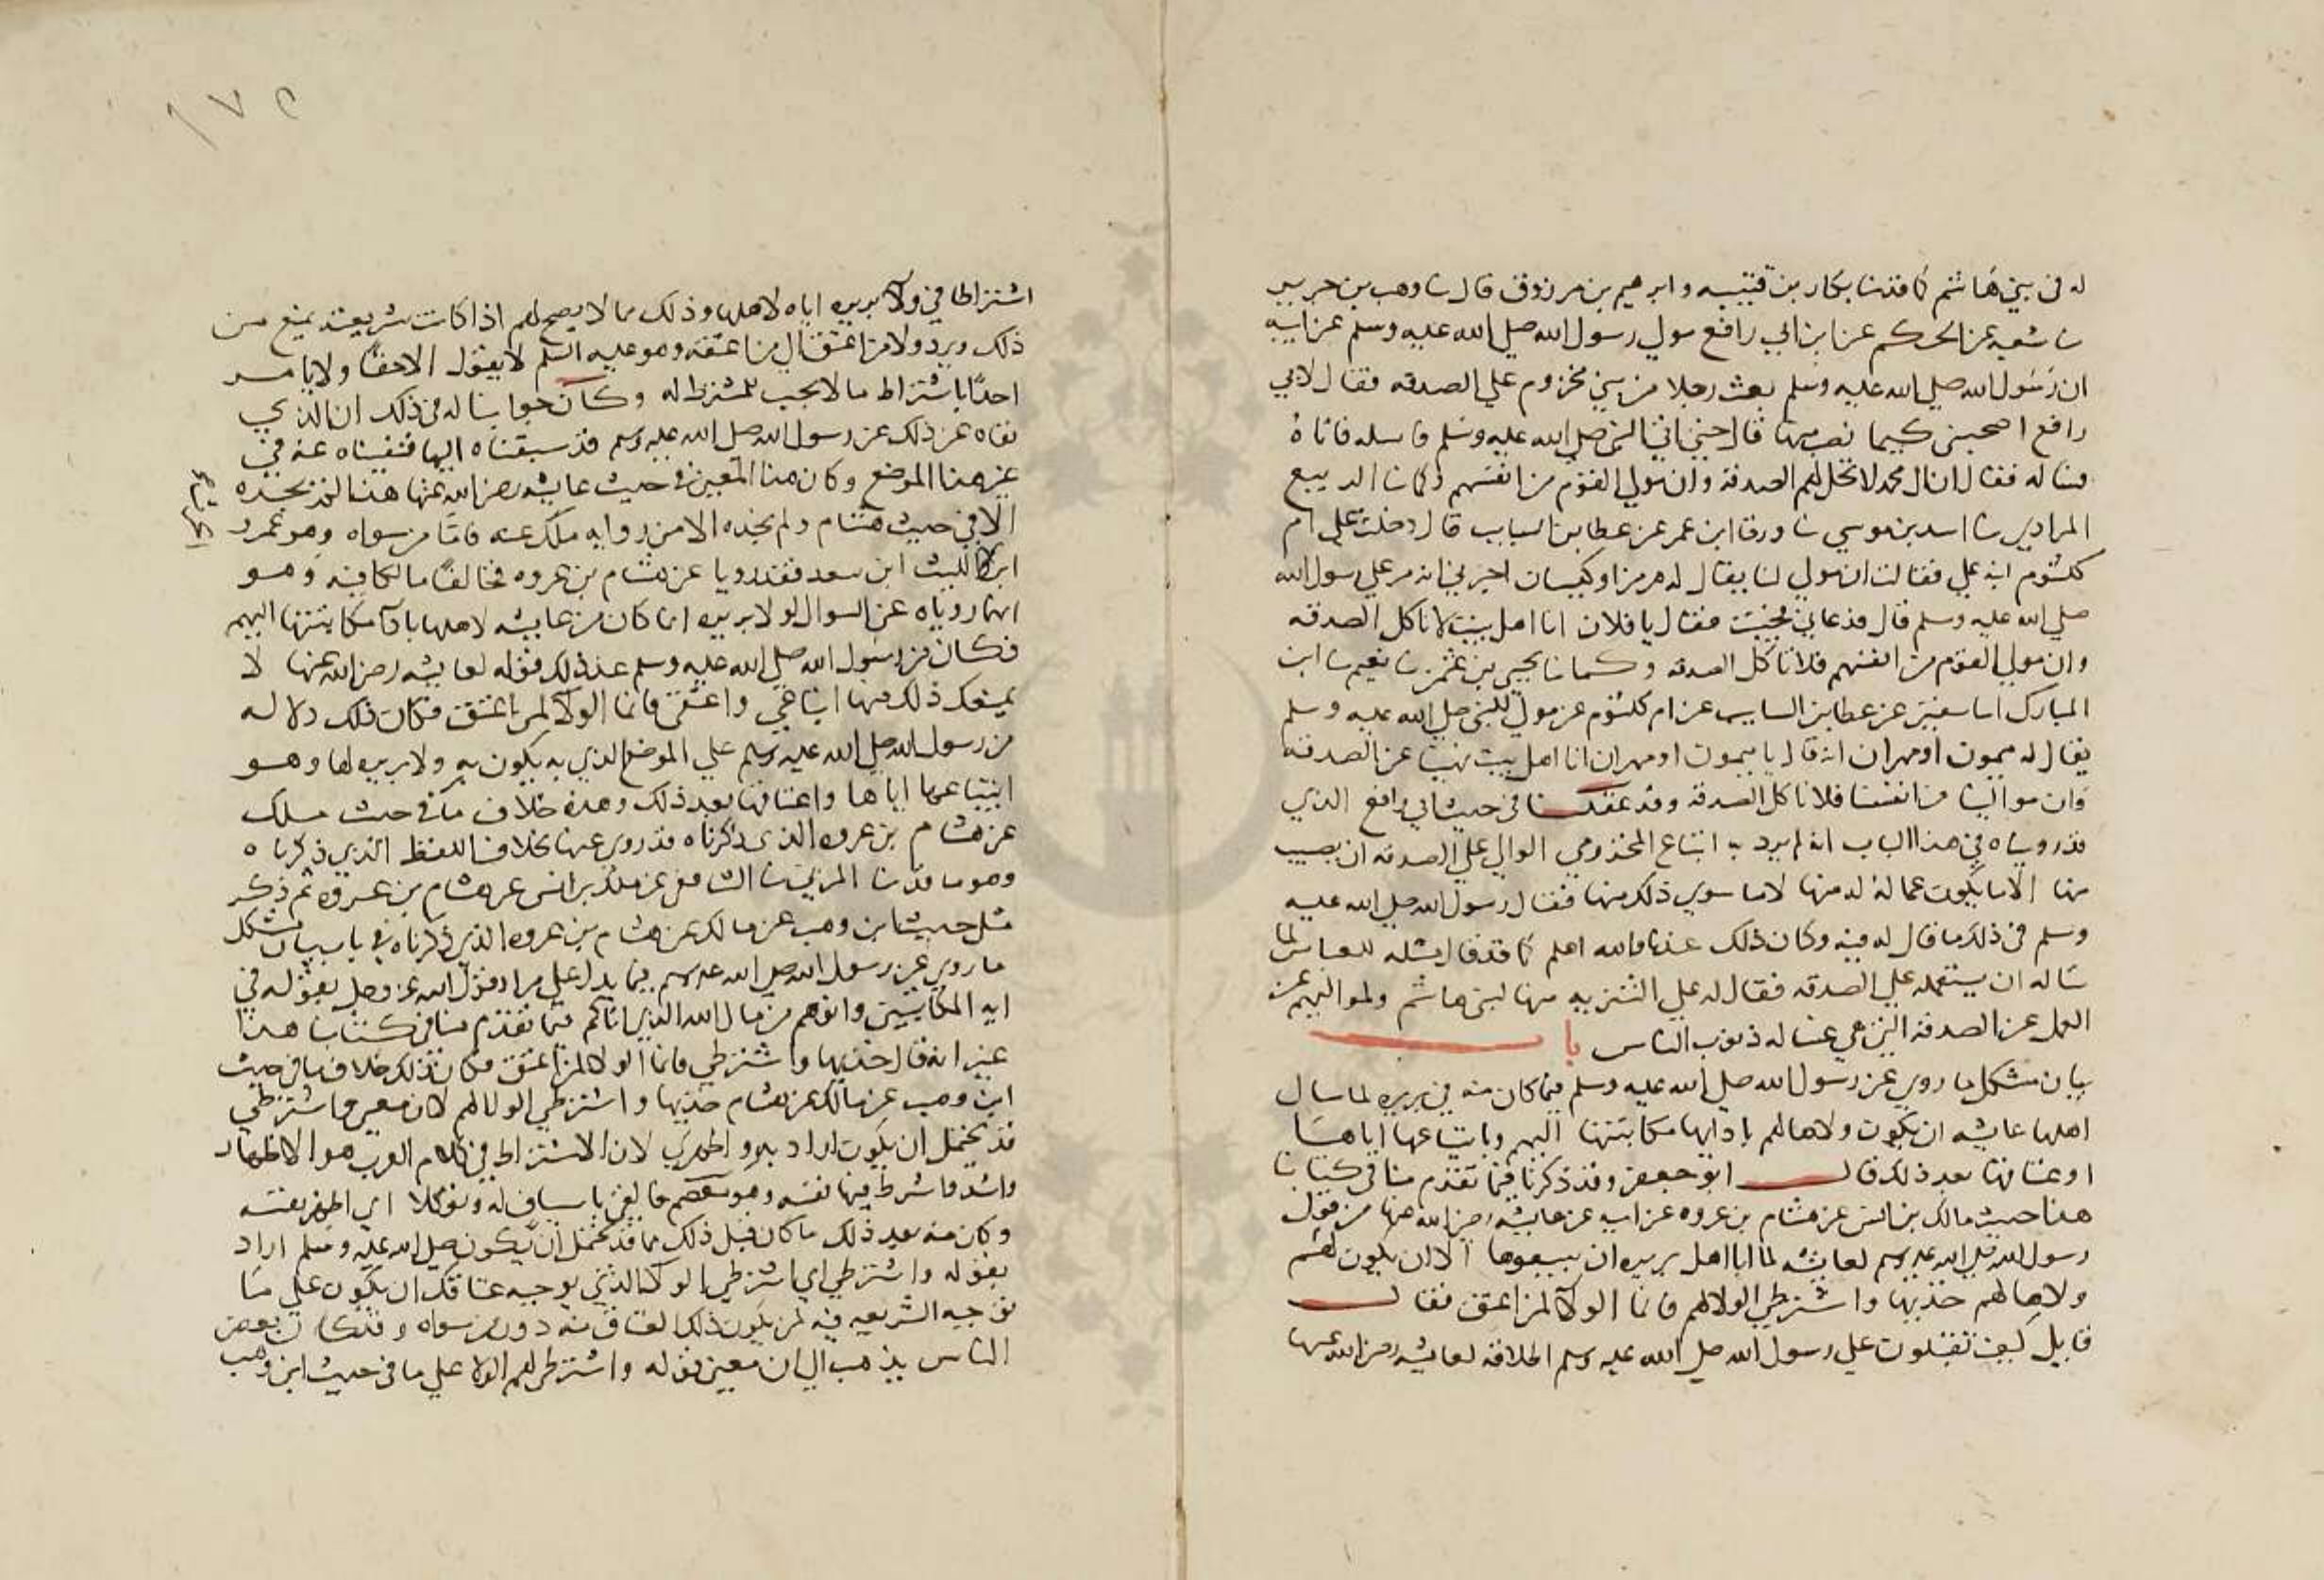 له في بني هاشم كما قد ثنا بكار بن قتيبه وابرهيم بن مرزوق قال ثنا وهب بن جرير
ثنا شعبه عن الحكم عن ابن ابي رافع مولي رسول الله صلي الله عليه وسلم عن ابيه
ان رسول الله صلي الله عليه وسلم بعث رجلا من بني مخزوم علي الصدقه فقال لابي
رافع اصحبني كيما نصيب منها قال حتي اتي النبي صلي الله عليه وسلم فاسله فاتاه
فساله فقال ان ال محمد لا تحل لهم الصدقه وان مولي القوم من انفسهم وكما ثنا الربيع
المرادي ثنا اسد بن موسي ثنا ورقا ابن عمر عن عطا بن السايب قال دخلت علي ام
كلثوم ابنه علي فقالت ان مولي لنا يقال له هرمز او كيسان اخبرني انه مر علي رسول الله
صلي الله عليه وسلم قال فدعاني فجيت فقال يا فلان انا اهل بيت لا ناكل الصدقه
وان مولي القوم من انفسهم فلا تاكل الصدقه وكما ثنا يحيي بن عثمن ثنا نعيم ثنا ابن
المبارك انا سفين عن عطا بن السايب عن ام كلثوم عن مولي للنبي صلي الله عليه وسلم
يقال له ميمون او مهران انه قال يا ميمون او مهران انا اهل بيت نهينا عن الصدقه
وان موالينا من انفسنا فلا تاكل الصدقه وقد عقلنا في حديث ابي رافع الذي
قد رويناه في هذا الباب انه لم يرد به اتباع المخزومي الوالي علي الصدقه ان يصيب
منها الا ما يكون عماله له منها لا ما سوي ذلك منها فقال رسول الله صلي الله عليه
وسلم في ذلك ما قال له فيه وكان ذلك عندنا والله اعلم كما قد قال مثله للعباس لما
ساله ان يستعمله علي الصدقه فقال له علي التنزيه منها لبني هاشم ولمواليهم عن
العمل عن الصدقه التي هي غساله ذنوب الناس باب
بيان مشكل ما روي عن رسول الله صلي الله عليه وسلم فيما كان منه في بريره لما سال
اهلها عايشه ان يكون ولاها لهم بادايها مكاتبتها اليهم وبابتياعها اياها
او عتاقها بعد ذلك قال ابو جعفر وقد ذكرنا فيما تقدم منا في كتابنا
هذا حديث مالك بن انس عن هشام بن عروه عن ابيه عن عايشه رضي الله عنها من قول
رسول الله صلي الله عليه وسلم لعايشه لما ابا اهل بريره ان يبيعوها الا ان يكون لهم
ولاها لهم خذيها واشترطي الولا لهم فانما الولآ لمن اعتق فقال
قايل كيف تقبلون علي رسول الله صلي الله عليه وسلم اطلاقه لعايشه رضي الله عنها
١٧٥
اشتراطا في ولآ بريره اياه لاهلها وذلك مما لا يصح لهم اذا كانت شريعته تمنع من
ذلك ويرد ولا من اعتق الي من اعتقه وهو عليه السلم لا يقول الا حقا ولا يامر
احدا باشتراط ما لا يجب للمشترط له وكان جوابنا له في ذلك ان الذي
نفاه عن ذلك عن رسول الله صلي الله عليه وسلم قد سبقناه اليها فنفيناه عنه في
غير هذا الموضع وكان هذا المعني في حديث عايشه رضي الله عنها هذا لم نجده
الا في حديث هشام ولم نجده الا من روايه ملك عنه فاما من سواه وهو عمرو
ابن الليث ابن سعد فقد رويا عن هشام بن عروه مخالفا مالكا فيه وهو
انما روياه عن السوال لولا بريره انما كان من عايشه لاهلها بادآ مكاتبتها اليهم
فكان من رسول الله صلي الله عليه وسلم عند ذلك فقوله لعايشه رضي الله عنها لا
يمنعك ذلك منها ابتاعي واعتقي فانما الولآ لمن اعتق فكان ذلك دلاله
من رسول الله صلي الله عليه وسلم علي الموضع الذي به يكون به ولا بريره لها وهو
ابتياعها اياها واعتاقها بعد ذلك وهذه خلاف ما في حديث ملك
عن هشام بن عروه الذي ذكرناه قد روي عنها بخلاف اللفظ الذي ذكرناه
وهو ما قد ثنا المزني ثنا الشافعي عن ملك بن انس عن هشام بن عروه ثم ذكر
مثل حديث ابن وهب عن مالك عن هشام بن عروه الذي ذكرناه في باب بيان مشكل
ما روي عن رسول الله صلي الله عليه وسلم فيما يدل علي مراد قول الله عز وجل بقوله في
ايه المكاتبين واتوهم من مال الله الذي اتاكم فيما تقدم منا في كتابنا هذا
غير انه قال خذيها واشترطي فانما الولا لمن اعتق فكان ذلك خلاف ما في حديث
ابن وهب عن مالك عن هشام خذيها واشترطي الولا لهم لان معني واشترطي
قد يحتمل ان يكون اراد به واظهري لان الاشتراط في كلام العرب هو الاظهار
واشد فاشرط فيها نفسه وهو معصم فالقي باسباب له وتوكلا اي اظهر نفسه
وكان منه بعد ذلك ما كان قبل ذلك مما قد يحتمل ان يكون صلي الله عليه وسلم اراد
بقوله واشترطي اي اشترطي بالولآ الذي يوجبه عتاقك ان يكون علي ما
توجبه الشريعه فيه لمن يكون ذلك العتاق منه دون من سواه وقد كان بعض
الناس يذهب الي ان معني قوله واشترطي لهم الولا علي ما في حديث ابن وهب